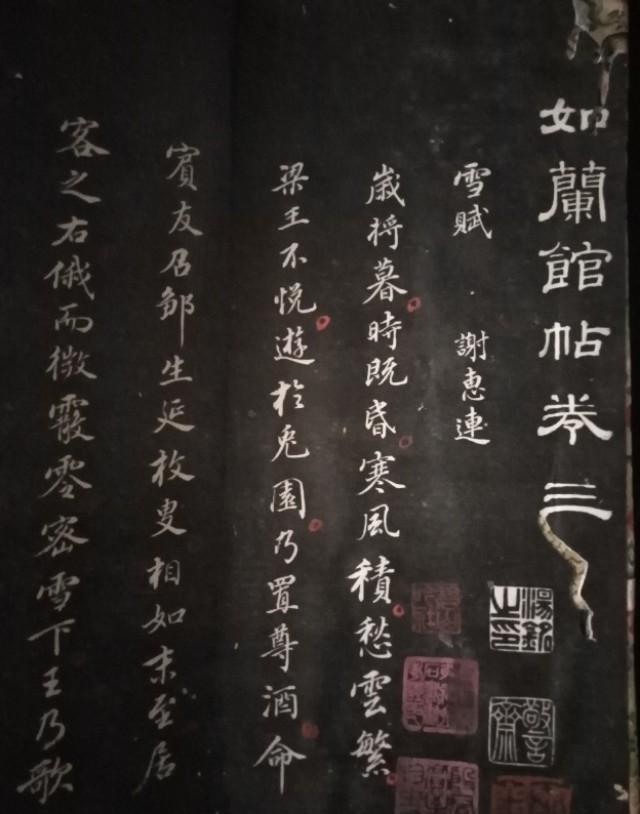 如蘭館帖卷三
雪賦 謝惠連
歲将暮時既昏寒風積愁雲繁
梁王不悅遊於兎園乃置尊酒命
賓友召鄒生延枚叟相如末至居
客之右俄而微霰零密雪下王乃歌